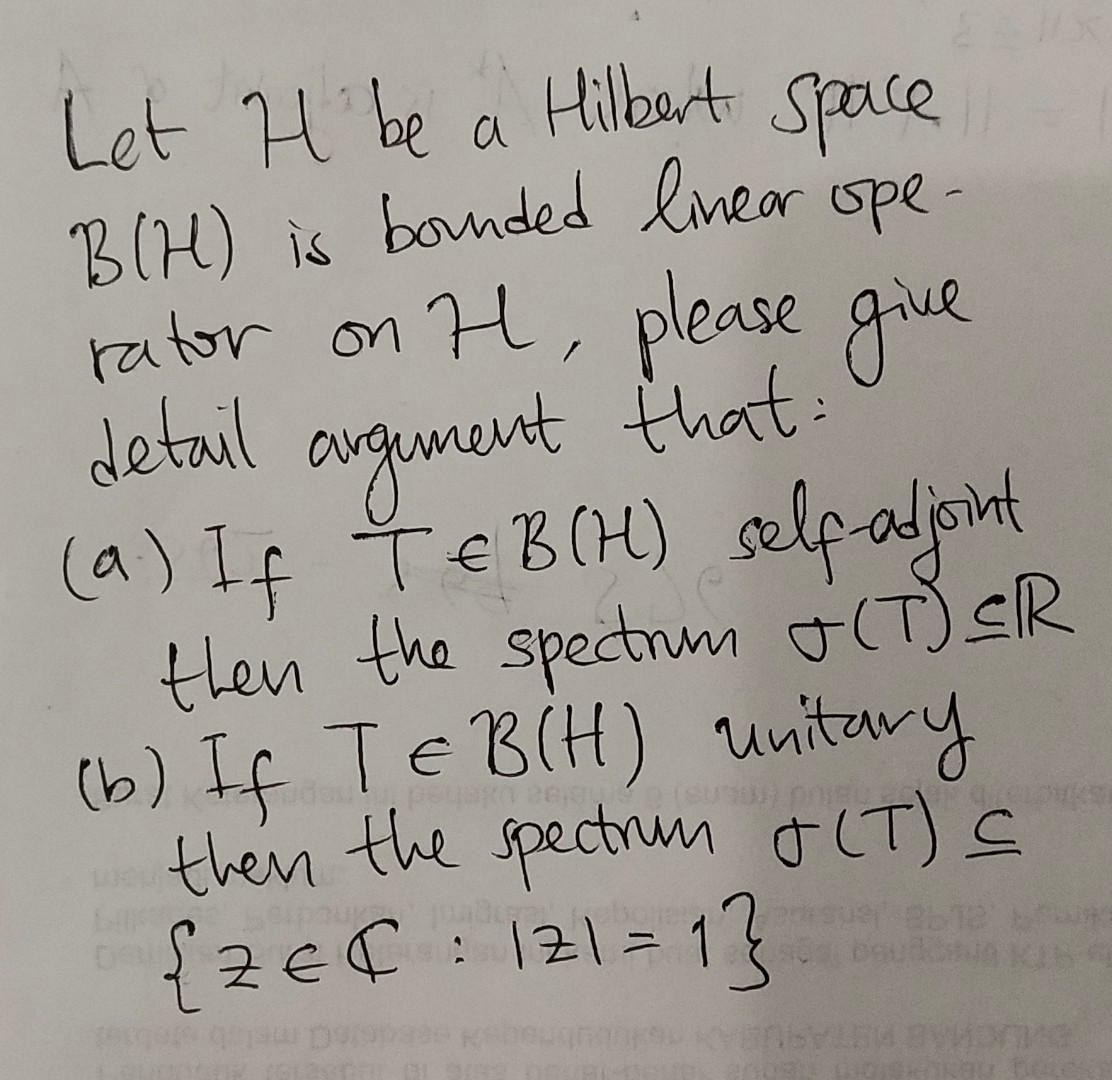 Let H be a Hilbert space
B(H) is bounded linear ope-
rator on H, please give
detail argument that:
(a) If T ∈ B(H) self-adjoint
then the spectrum σ(T) ⊆ ℝ
(b) If T ∈ B(H) unitary
then the spectrum σ(T) ⊆
{z ∈ ℂ : |z| = 1}